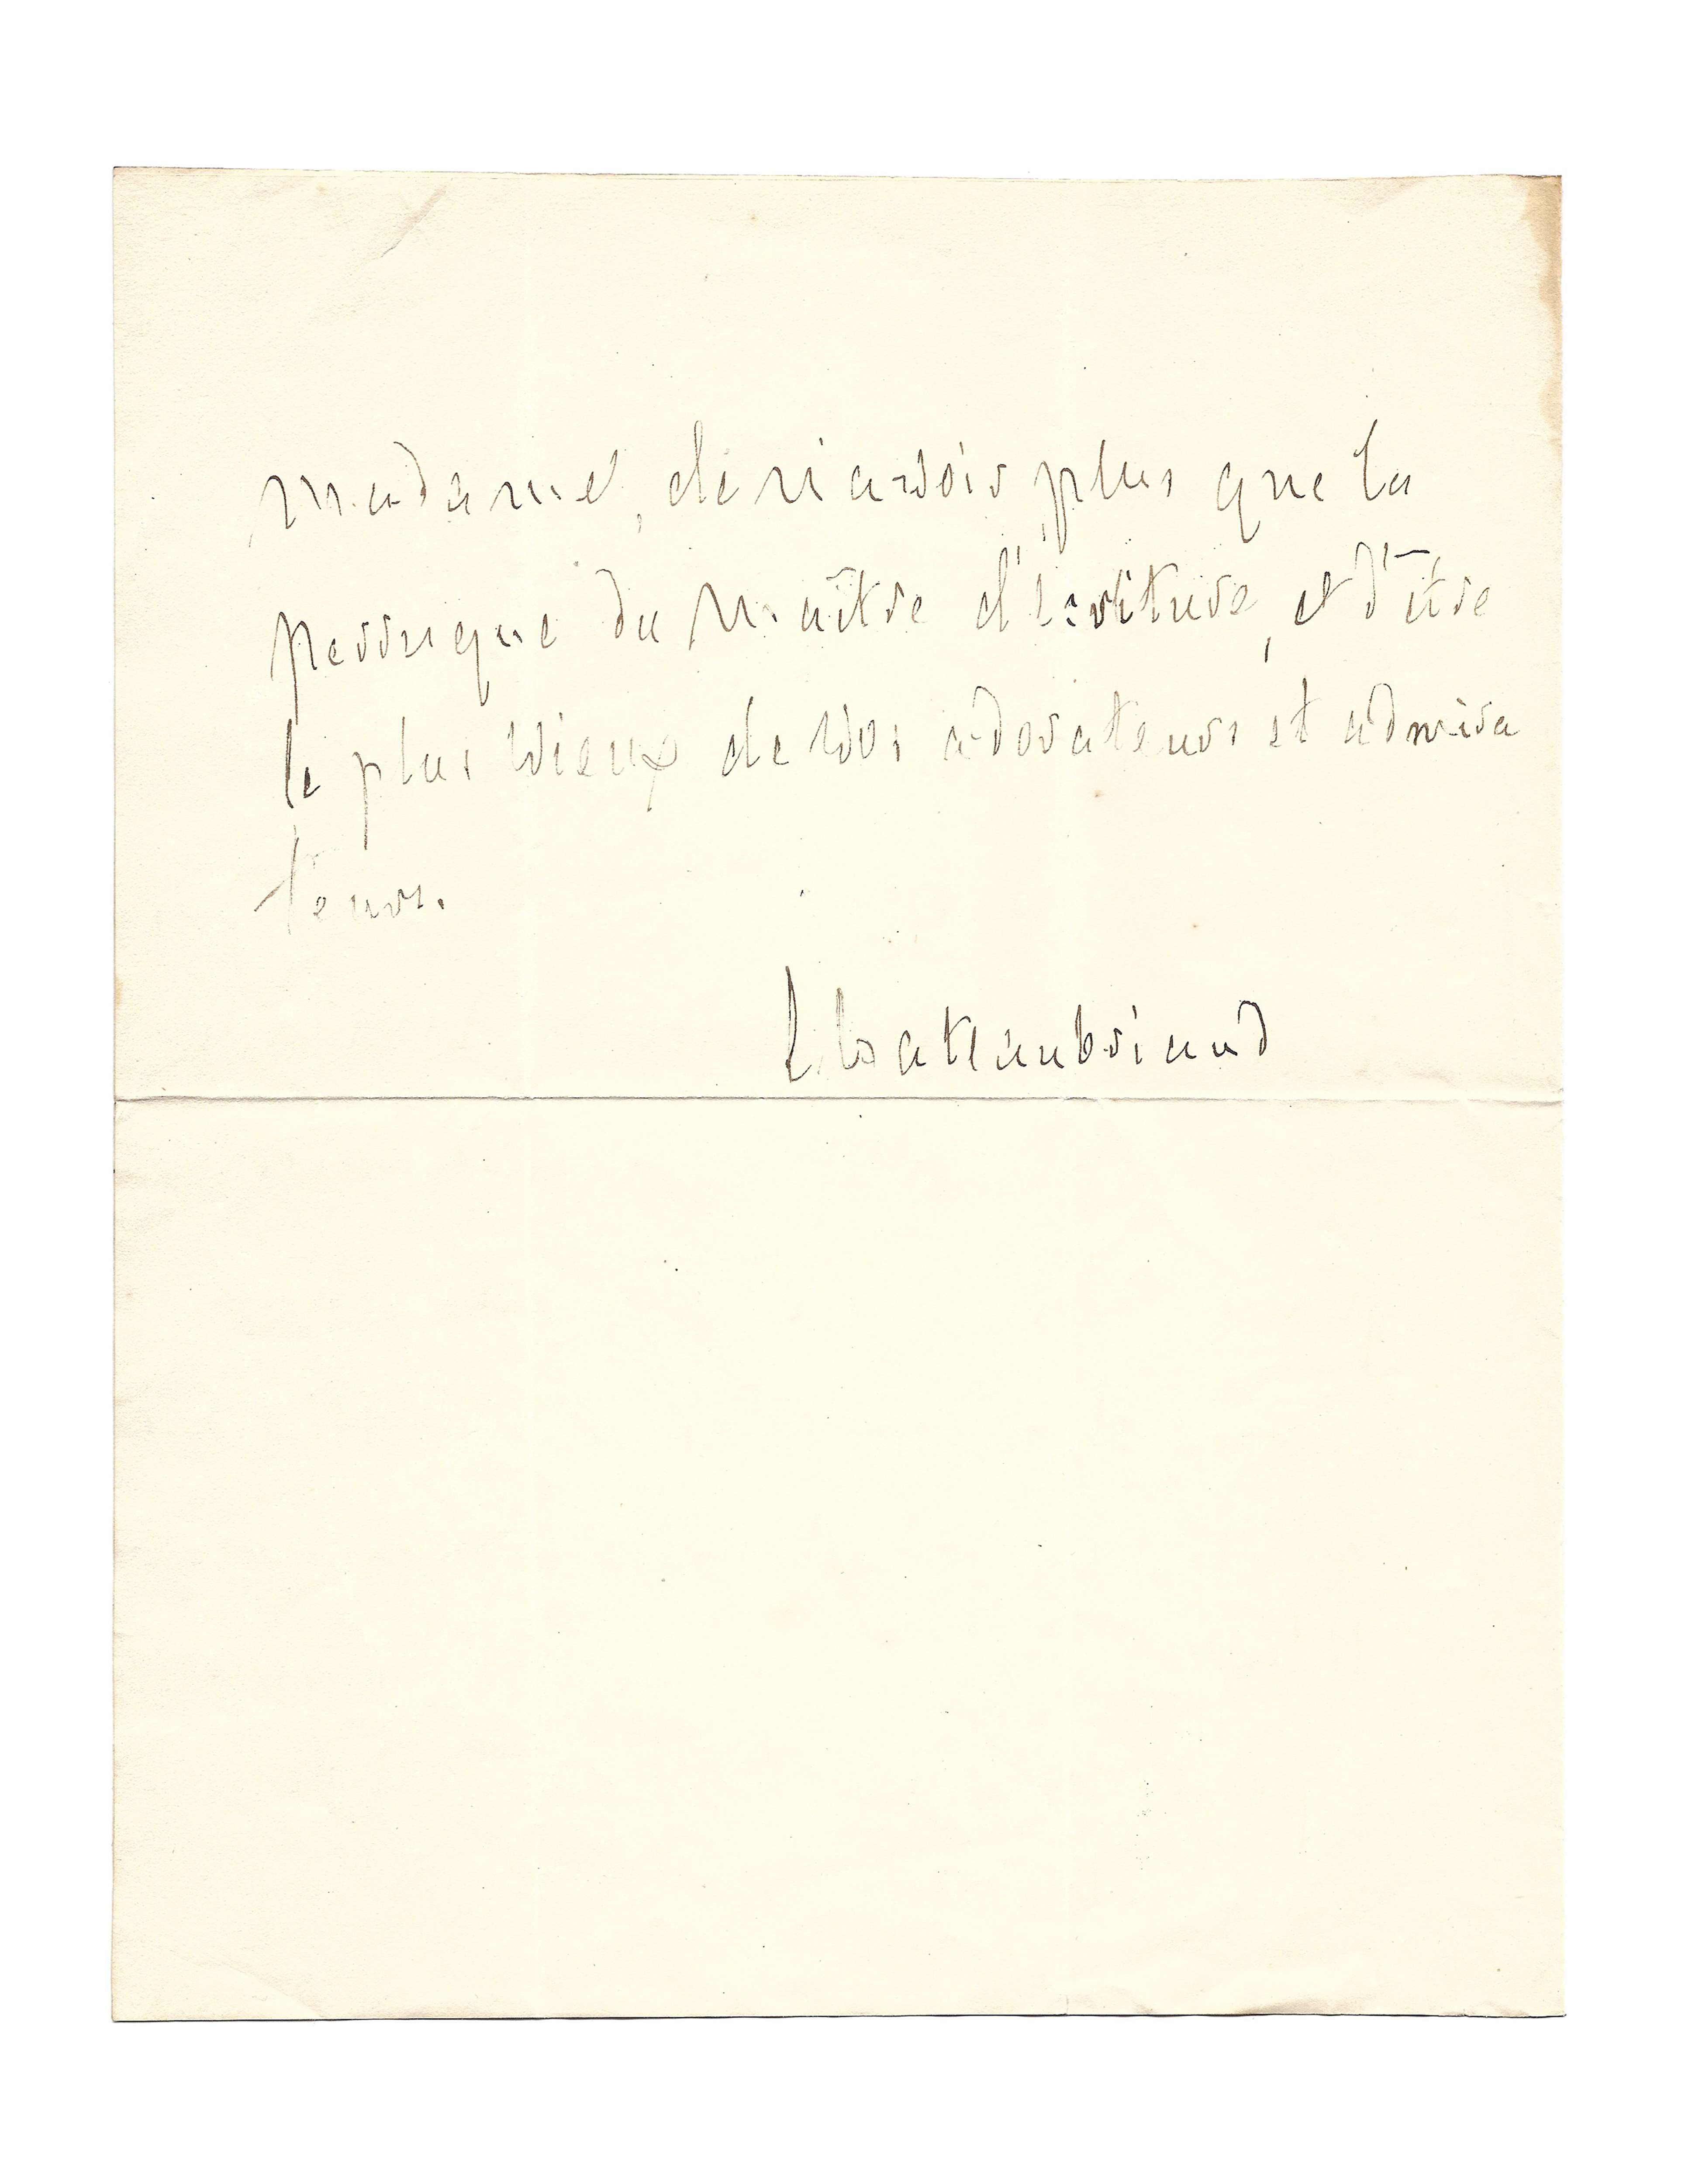 madame, de n'avoir plus que la
perruque du maître d'écriture, et d'être
le plus vieux de vos adorateurs et admira
teurs.
Chateaubriand